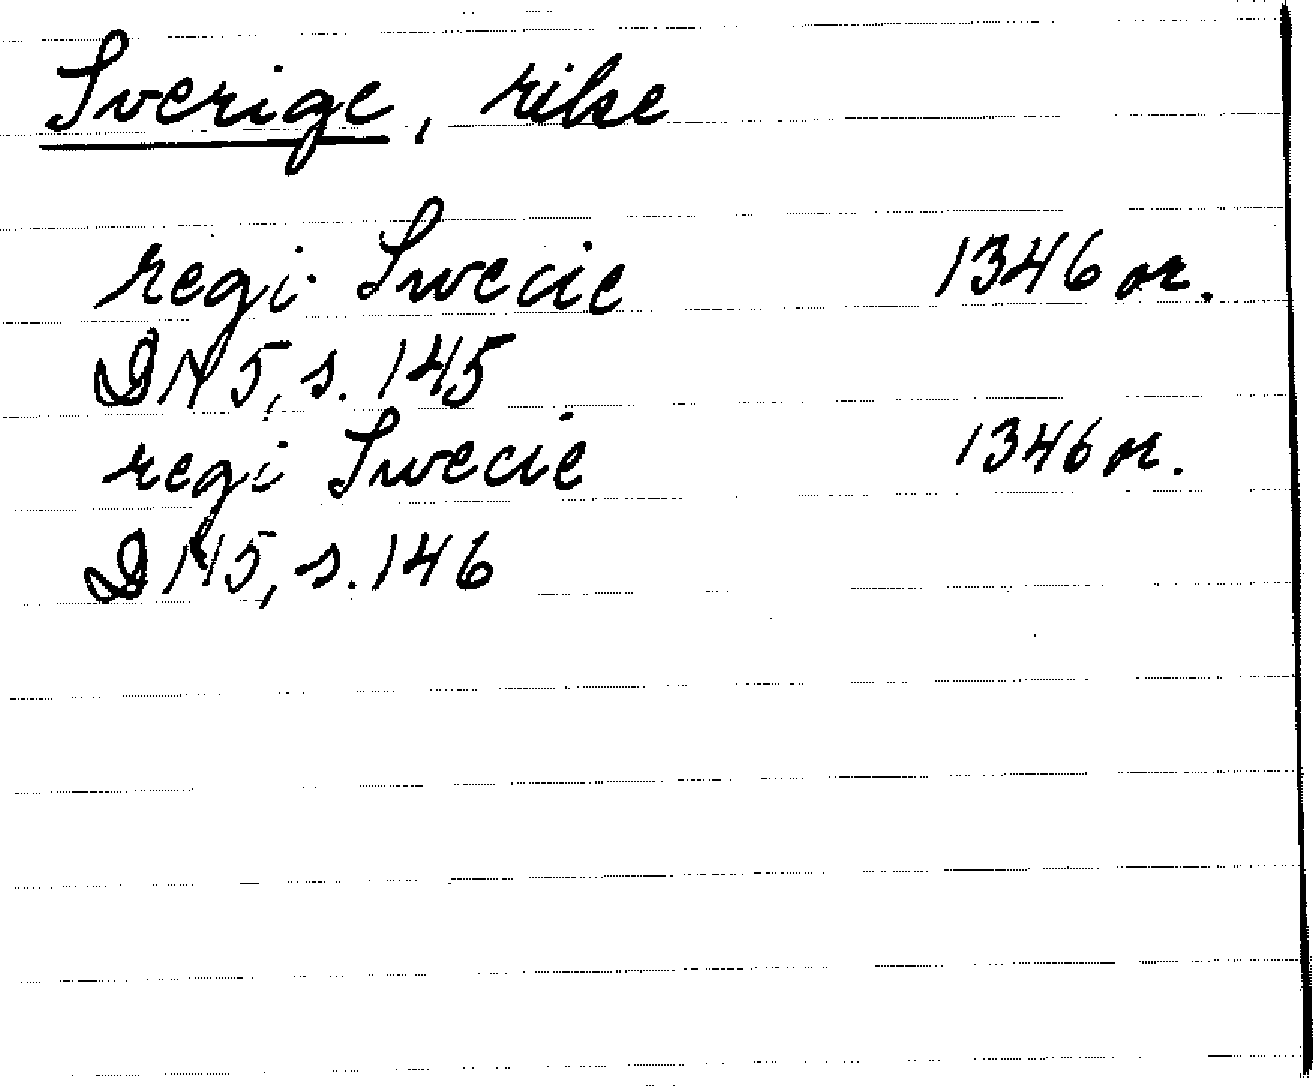 Sverige, rike
regi Swecie 1346 or.
DN 5, s. 145
regi Swecie 1346 or.
DN 5, s. 146